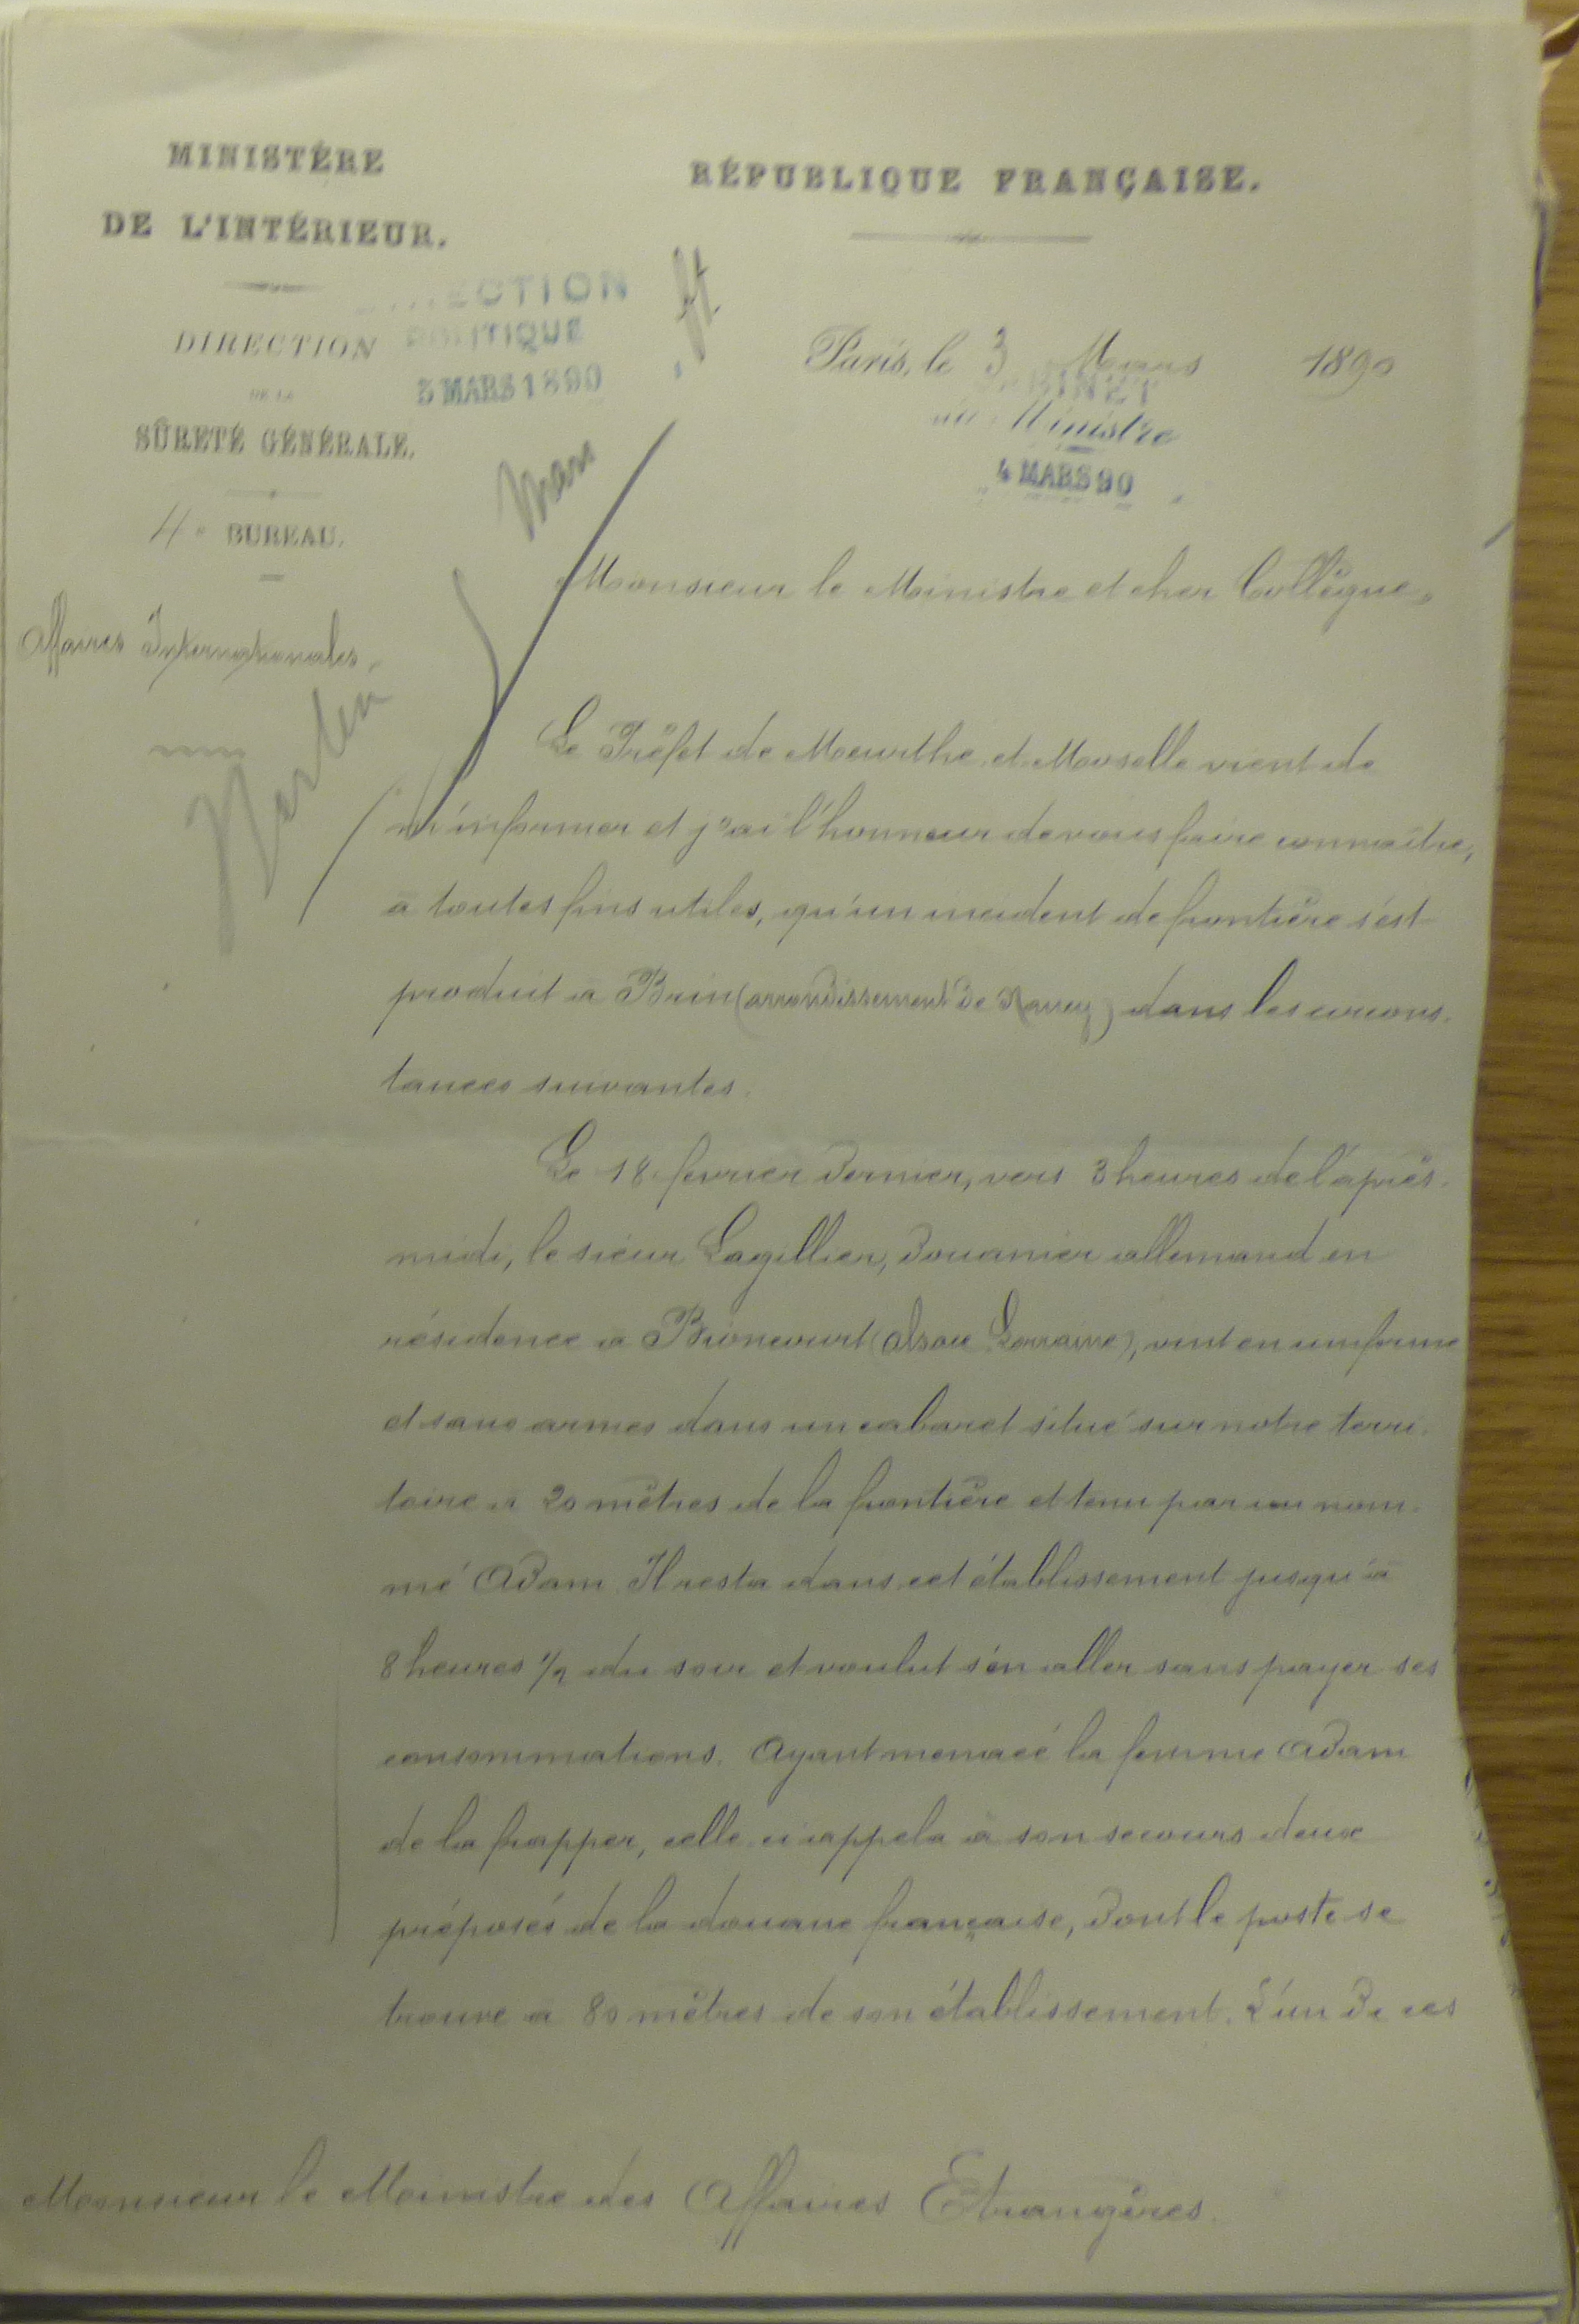 MINISTÈRE
DE L'INTÉRIEUR.
RÉPUBLIQUE FRANÇAISE.
DIRECTION
DE LA
SÛRETÉ GÉNÉRALE.
4e BUREAU.
Affaires Internationales.
DIRECTION
POLITIQUE
5 MARS 1890
Paris, le 3 Mars 1890
CABINET
du Ministre
4 MARS 90
Monsieur le Ministre et cher Collègue,
Le Préfet de Meurthe et Moselle vient de
m'informer et j'ai l'honneur de vous faire connaître,
à toutes fins utiles, qu'un incident de frontière s'est
produit à Brin (arrondissement de Nancy) dans les circons-
tances suivantes.
Le 18 février dernier, vers 3 heures de l'après-
midi, le sieur Lagillier, douanier allemand en
résidence à Bioncourt (Alsace Lorraine), vint en uniforme
et sans armes dans un cabaret situé sur notre terri-
toire à 20 mètres de la frontière et tenu par un nom-
mé Adam. Il resta dans cet établissement jusqu'à
8 heures 1/2 du soir et voulut s'en aller sans payer ses
consommations. Ayant menacé la femme Adam
de la frapper, celle-ci appela à son secours deux
préposés de la douane française, dont le poste se
trouve à 80 mètres de son établissement. L'un de ces
Monsieur le Ministre des Affaires Etrangères.